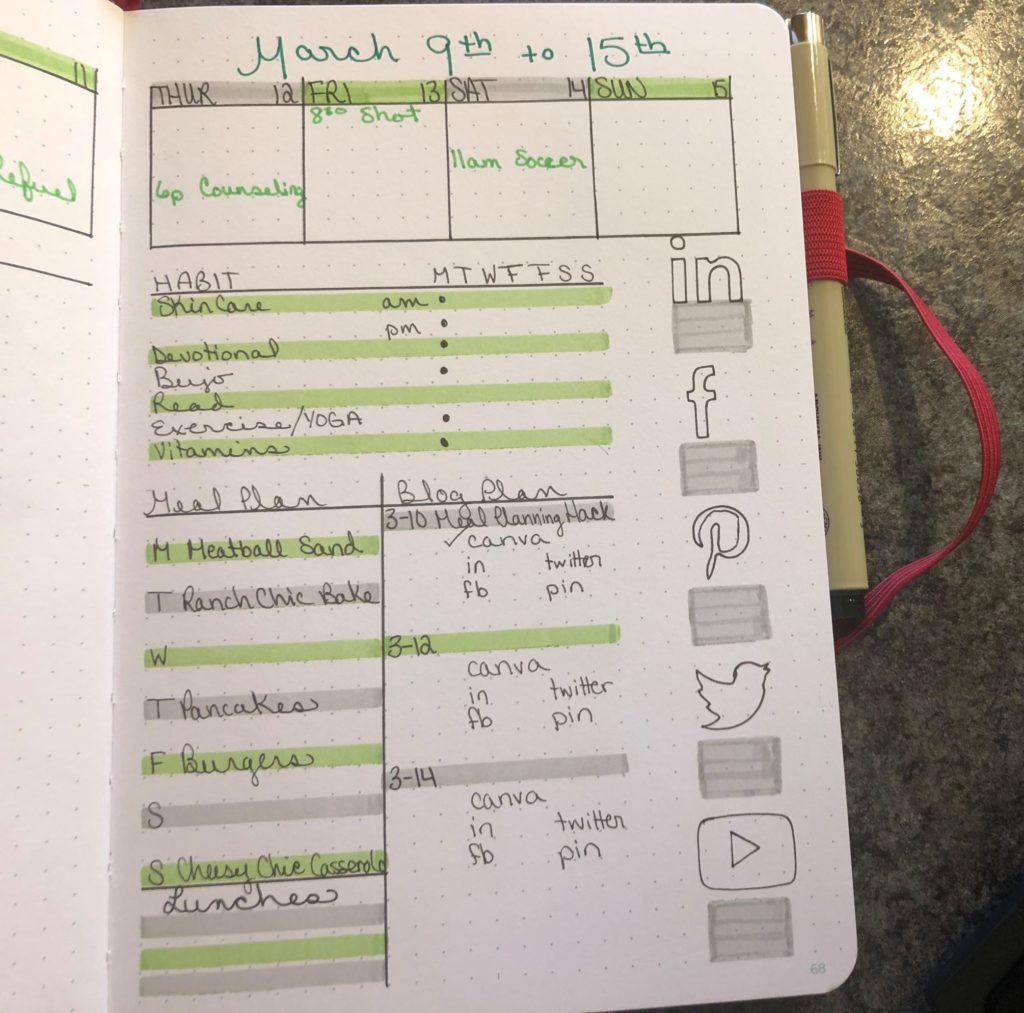 11
Refuel
March 9th to 15th
THUR 12 FRI 13 SAT 14 SUN 15
8:30 Shot
11am Soccer
6p Counseling
HABIT M T W F F S S
Skin Care am
pm
Devotional
Bujo
Read
Exercise/YOGA
Vitamins
Meal Plan
M Meatball Sand
T Ranch Chic Bake
W
T Pancakes
F Burgers
S
S Cheesy Chic Casserole
Lunches
Blog Plan
3-10 Meal Planning Hack
✓canva
in twitter
fb pin
3-12
canva
in twitter
fb pin
3-14
canva
in twitter
fb pin
in
f
68